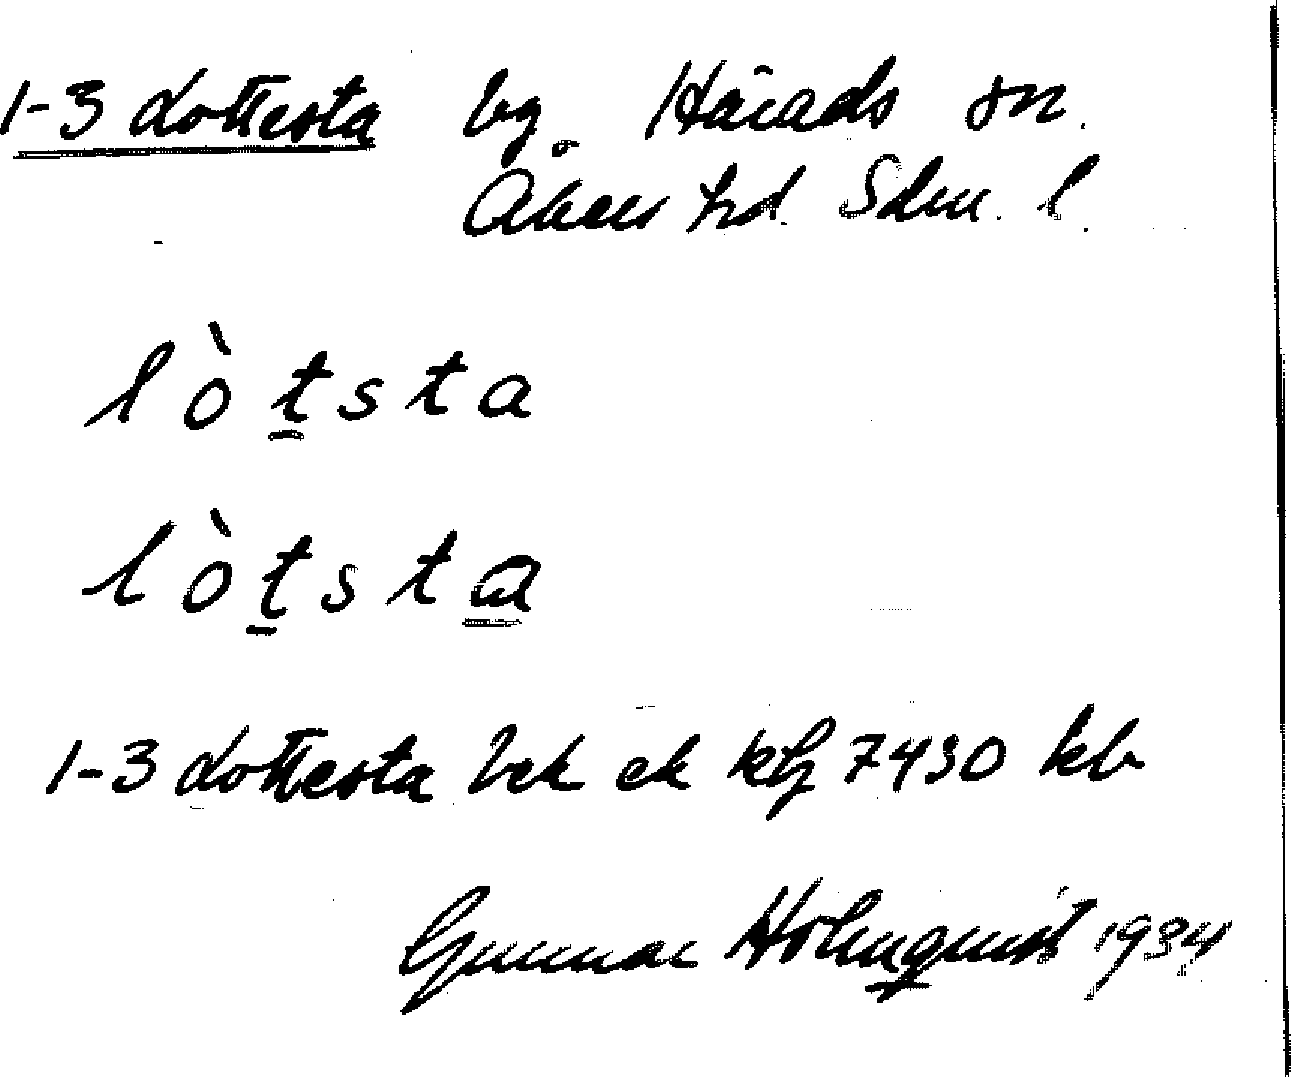 1-3 Lottesta by. Härads sn.
Åkers hd. Sdm. l.
lòtsta
lòtsta
1-3 Lottesta bek ek kbf 7430 kb
Gunnar Holmquist 1934